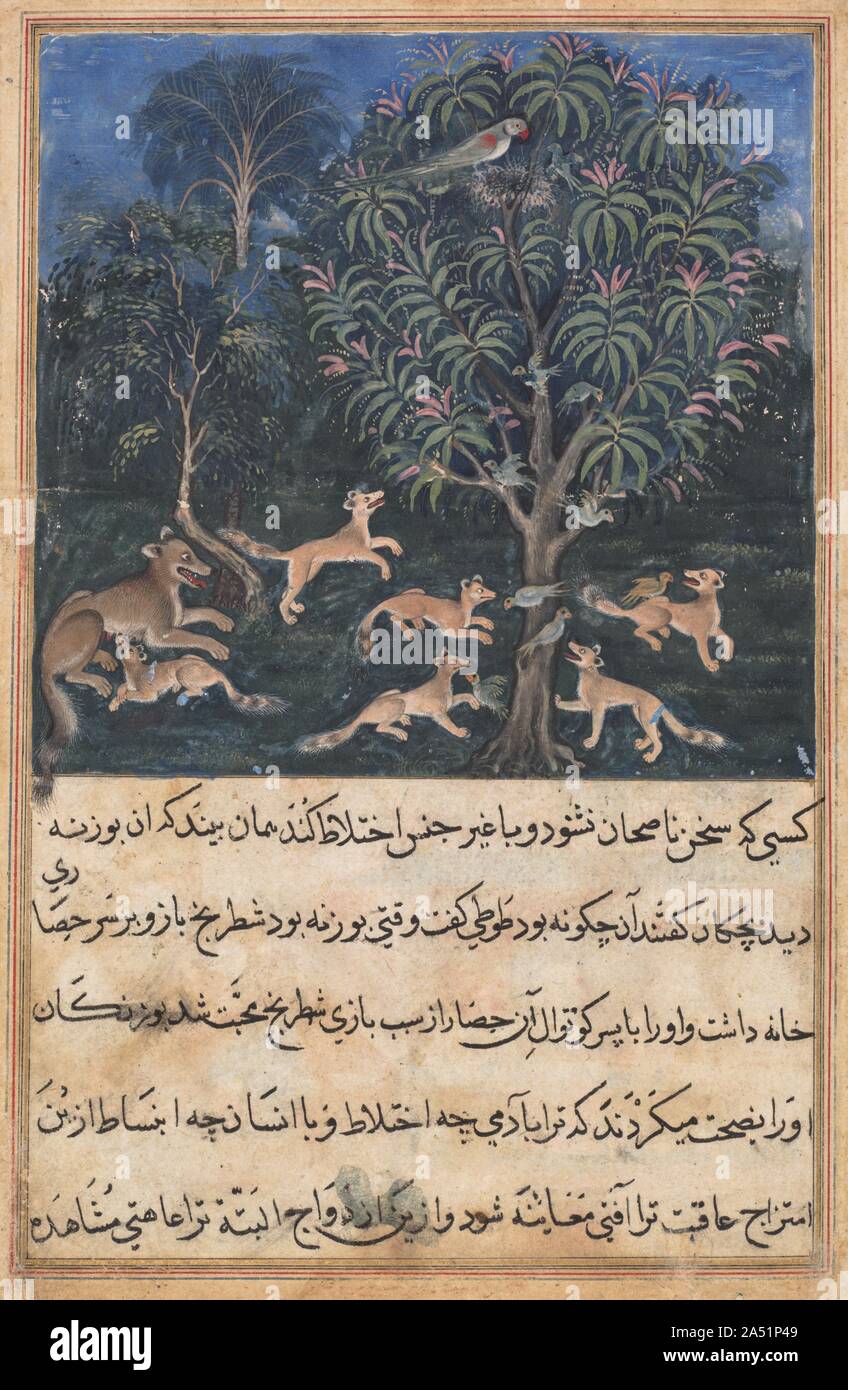 کسیی که سخن ناصحان نشنود و با غیر جنس اختلاط کند همان بیند که ان بوزنه
دید بچکان کفتند آن چکونه بود طوطی کفت وقتی بوزنه بود شطرنج باز و بر سر حصاری
خانه داشت و او را با پسر کوتوال آن حصار از سبب بازی شطرنج محبت شد بوزنکان
او را نصحت میکردند که ترا با آدمی چه اختلاط و با انسان چه ابنساط از بن
امتزاج عاقبت ترا آفتی معاینه شود و ازین ازدواج البتة ترا عاهتی مشاهده
alamy
Image ID: 2A51P49
www.alamy.com